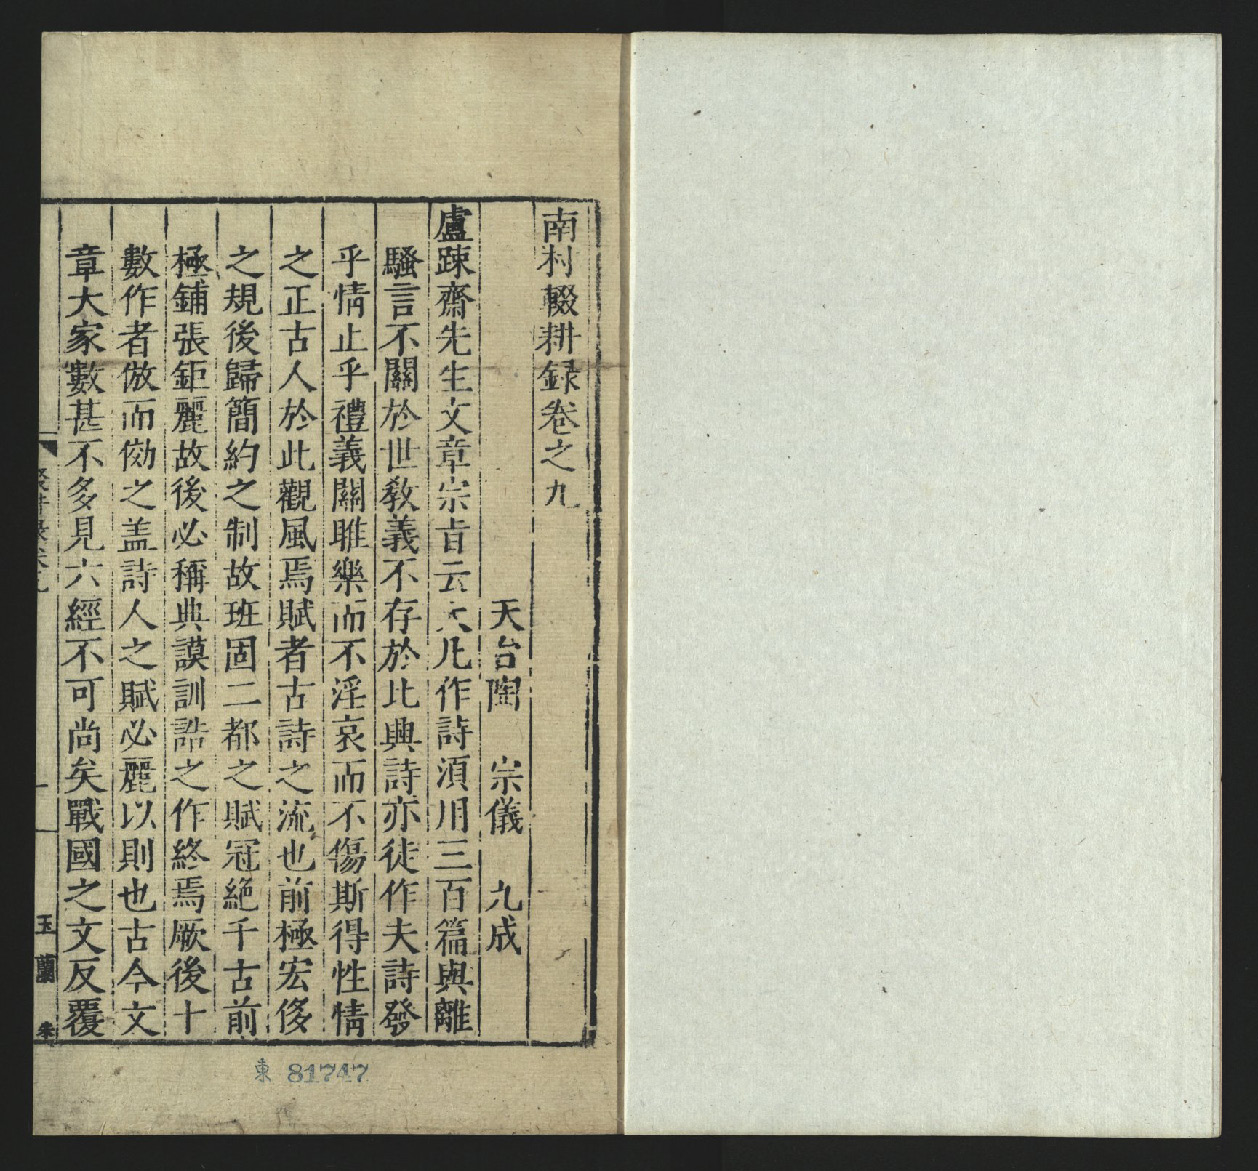 南村輟耕錄卷之九
天台陶 宗儀 九成
盧疎齋先生文章宗旨云大凡作詩須用三百篇與離
騷言不關於世教義不存於比興詩亦徒作夫詩發
乎情止乎禮義關雎樂而不淫哀而不傷斯得性情
之正古人於此觀風焉賦者古詩之流也前極宏侈
之規後歸簡約之制故班固二都之賦冠絕千古前
極鋪張鉅麗故後必稱典謨訓誥之作終焉厥後十
數作者倣而傚之盖詩人之賦必麗以則也古今文
章大家數甚不多見六經不可尚矣戰國之文反覆
玉蘭
東 81747